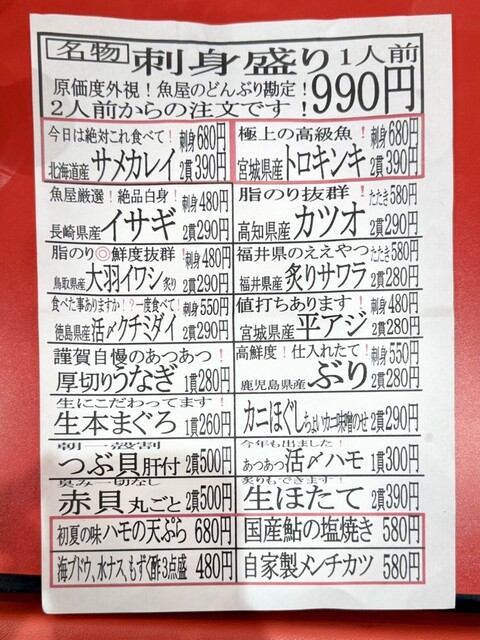 名物 刺身盛り 1人前
原価度外視！魚屋のどんぶり勘定！ 990円
2人前からの注文です！
今日は絶対これ食べて！ 刺身680円
北海道産 サメカレイ 2貫390円
極上の高級魚！ 刺身680円
宮城県産 トロキンキ 2貫390円
魚屋厳選！絶品白身！ 刺身480円
長崎県産 イサギ 2貫290円
脂のり抜群！ たたき580円
高知県産 カツオ 2貫290円
脂のり◎鮮度抜群！ 刺身480円
鳥取県産 大羽イワシ 炙り 2貫290円
福井県のええやつ たたき580円
福井県産 炙りサワラ 2貫280円
食べた事ありますか！？一度食べて！ 刺身550円
徳島県産 活〆クチミダイ 2貫290円
値打ちあります！ 刺身480円
宮城県産 平アジ 2貫280円
謹賀自慢のあつあつ！
厚切りうなぎ 1貫280円
高鮮度！仕入れたて！ 刺身550円
鹿児島県産 ぶり 2貫280円
生にこだわってます！
生本まぐろ 1貫260円
カニほぐし ちょいカニ味噌のせ 2貫290円
朝一殻割
つぶ貝肝付 2貫500円
今年も出ました！
あつあつ活〆ハモ 1貫300円
臭み一切なし
赤貝 丸ごと 2貫500円
炙りもできます！
生ほたて 2貫390円
初夏の味 ハモの天ぷら 680円
国産鮎の塩焼き 580円
海ブドウ、水ナス、もずく酢3点盛 480円
自家製メンチカツ 580円